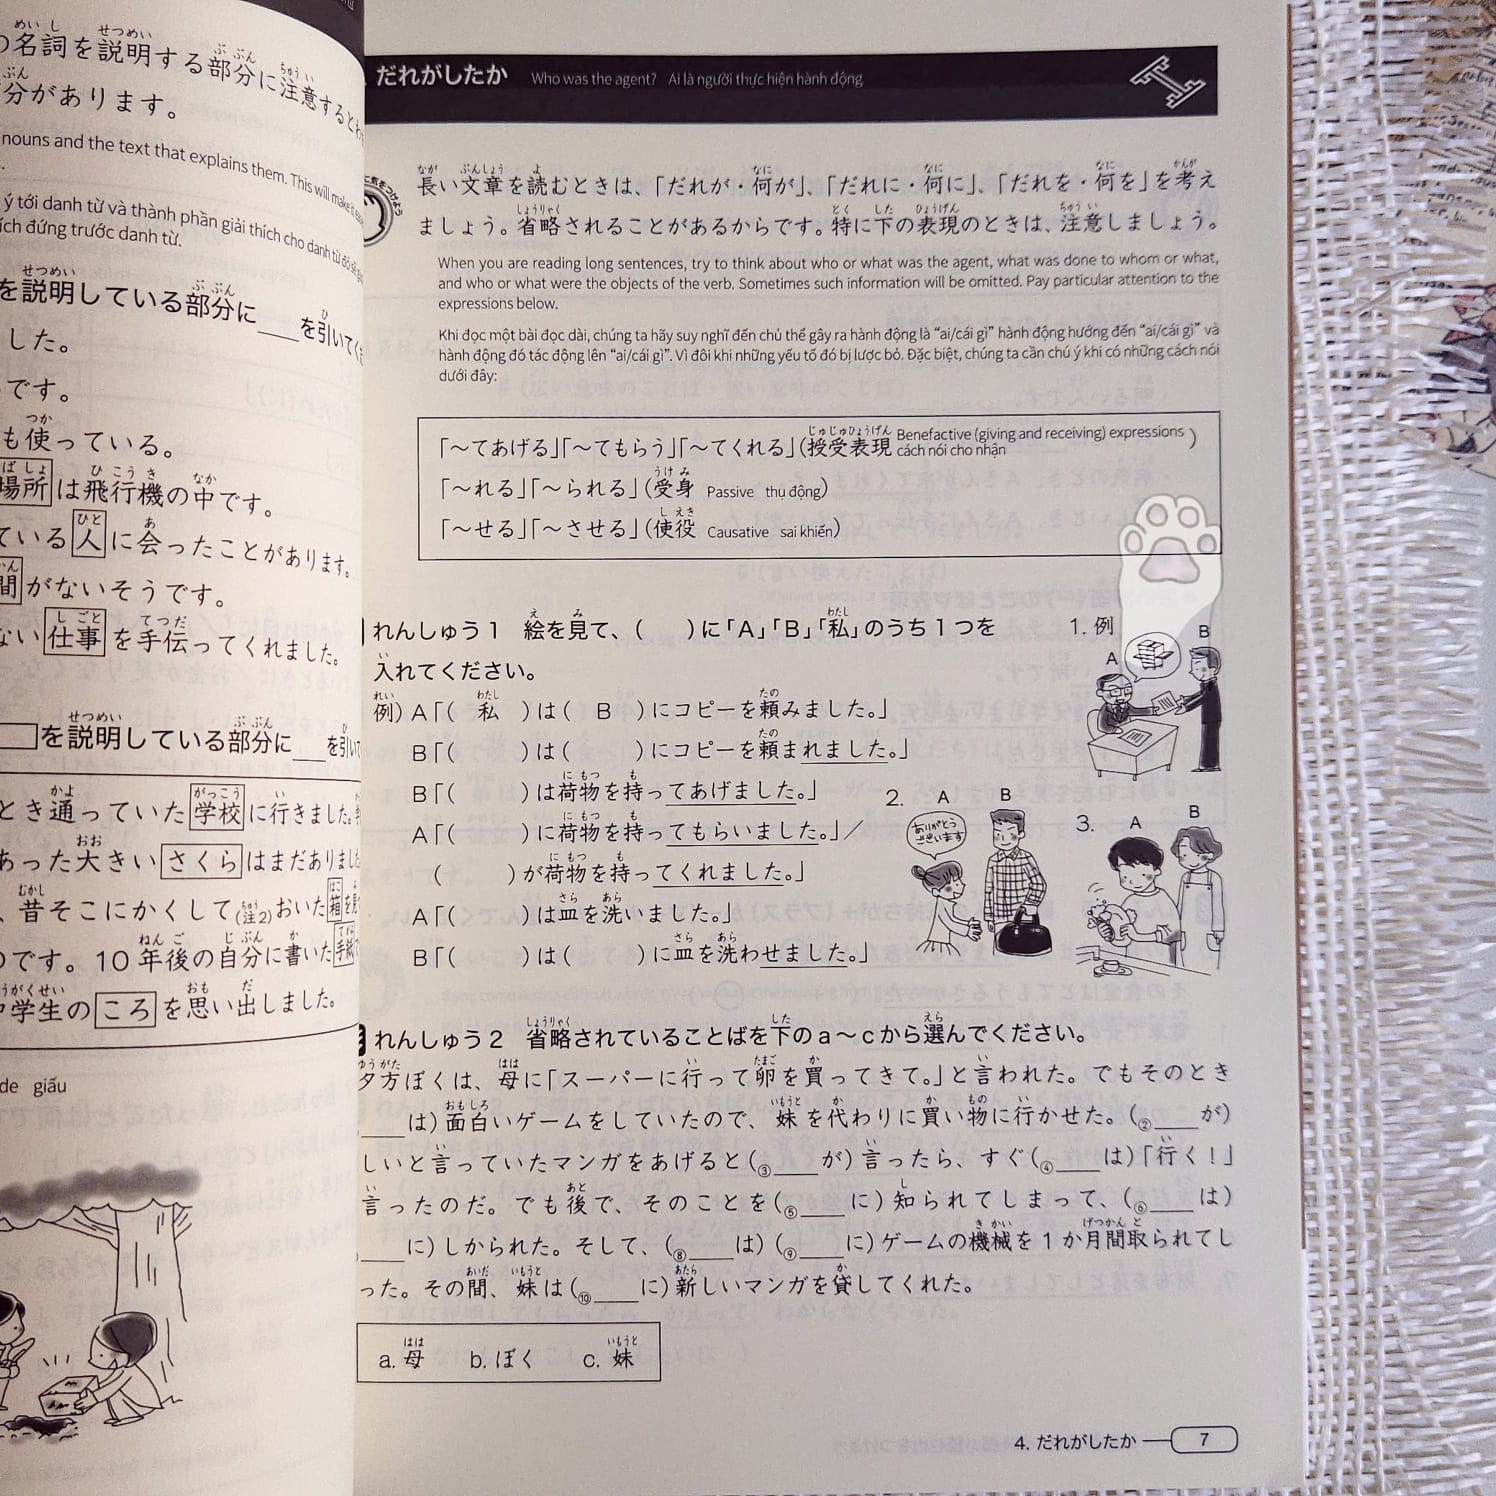 の名詞を説明する部分に注意すると
分があります。
nouns and the text that explains them. This will make it
ý tới danh từ và thành phần giải thích cho danh từ đó
ích đứng trước danh từ.
を説明している部分に___を引いて
した。
です。
も使っている。
場所は飛行機の中です。
ている人に会ったことがあります。
間がないそうです。
ない仕事を手伝ってくれました。
を説明している部分に___を引いて
とき通っていた学校に行きました。
あった大きいさくらはまだありまし
、昔そこにかくして(注2)おいた箱を
のです。10年後の自分に書いた手紙
中学生のころを思い出しました。
de giấu
だれがしたか Who was the agent? Ai là người thực hiện hành động
長い文章を読むときは、「だれが・何が」、「だれに・何に」、「だれを・何を」を考え
ましょう。省略されることがあるからです。特に下の表現のときは、注意しましょう。
When you are reading long sentences, try to think about who or what was the agent, what was done to whom or what,
and who or what were the objects of the verb. Sometimes such information will be omitted. Pay particular attention to the
expressions below.
Khi đọc một bài đọc dài, chúng ta hãy suy nghĩ đến chủ thể gây ra hành động là “ai/cái gì” hành động hướng đến “ai/cái gì” và
hành động đó tác động lên “ai/cái gì”. Vì đôi khi những yếu tố đó bị lược bỏ. Đặc biệt, chúng ta cần chú ý khi có những cách nói
dưới đây:
「～てあげる」「～てもらう」「～てくれる」(授受表現 Benefactive (giving and receiving) expressions cách nói cho nhận)
「～れる」「～られる」(受身 Passive thụ động)
「～せる」「～させる」(使役 Causative sai khiến)
れんしゅう1 絵を見て、( )に「A」「B」「私」のうち1つを
入れてください。
例) A「( 私 )は( B )にコピーを頼みました。」
B「( )は( )にコピーを頼まれました。」
B「( )は荷物を持ってあげました。」
A「( )に荷物を持ってもらいました。」／
( )が荷物を持ってくれました。」
A「( )は皿を洗いました。」
B「( )は( )に皿を洗わせました。」
1. 例
A
B
2.
A
B
ありがとう
ございます
3.
A
B
れんしゅう2 省略されていることばを下のa～cから選んでください。
夕方ぼくは、母に「スーパーに行って卵を買ってきて。」と言われた。でもそのとき
___は) 面白いゲームをしていたので、妹を代わりに買い物に行かせた。(②___が)
しいと言っていたマンガをあげると(③___が) 言ったら、すぐ(④___は)「行く！」
言ったのだ。でも後で、そのことを(⑤___に) 知られてしまって、(⑥___は)
___に) しかられた。そして、(⑧___は) (⑨___に) ゲームの機械を1か月間取られてし
った。その間、妹は(⑩___に) 新しいマンガを貸してくれた。
a. 母 b. ぼく c. 妹
4. だれがしたか 7